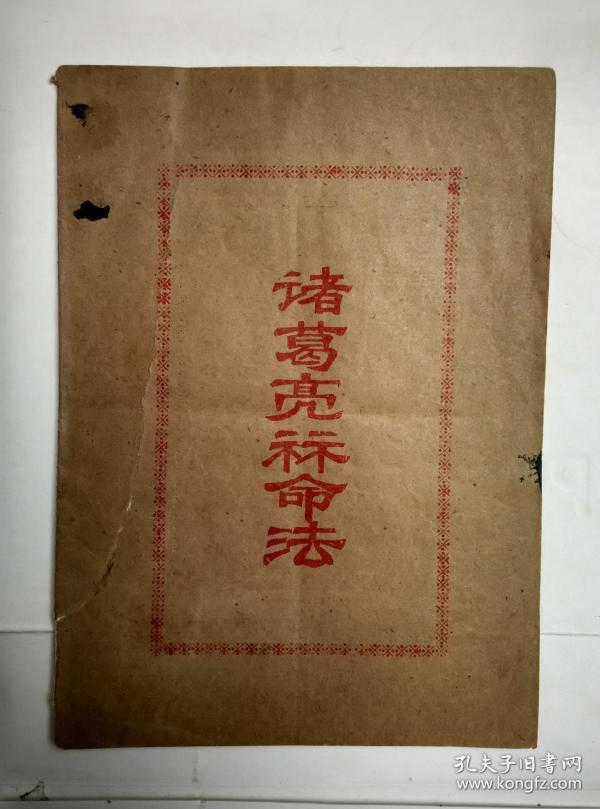 诸葛亮祘命法
孔夫子旧书网
www.kongfz.com